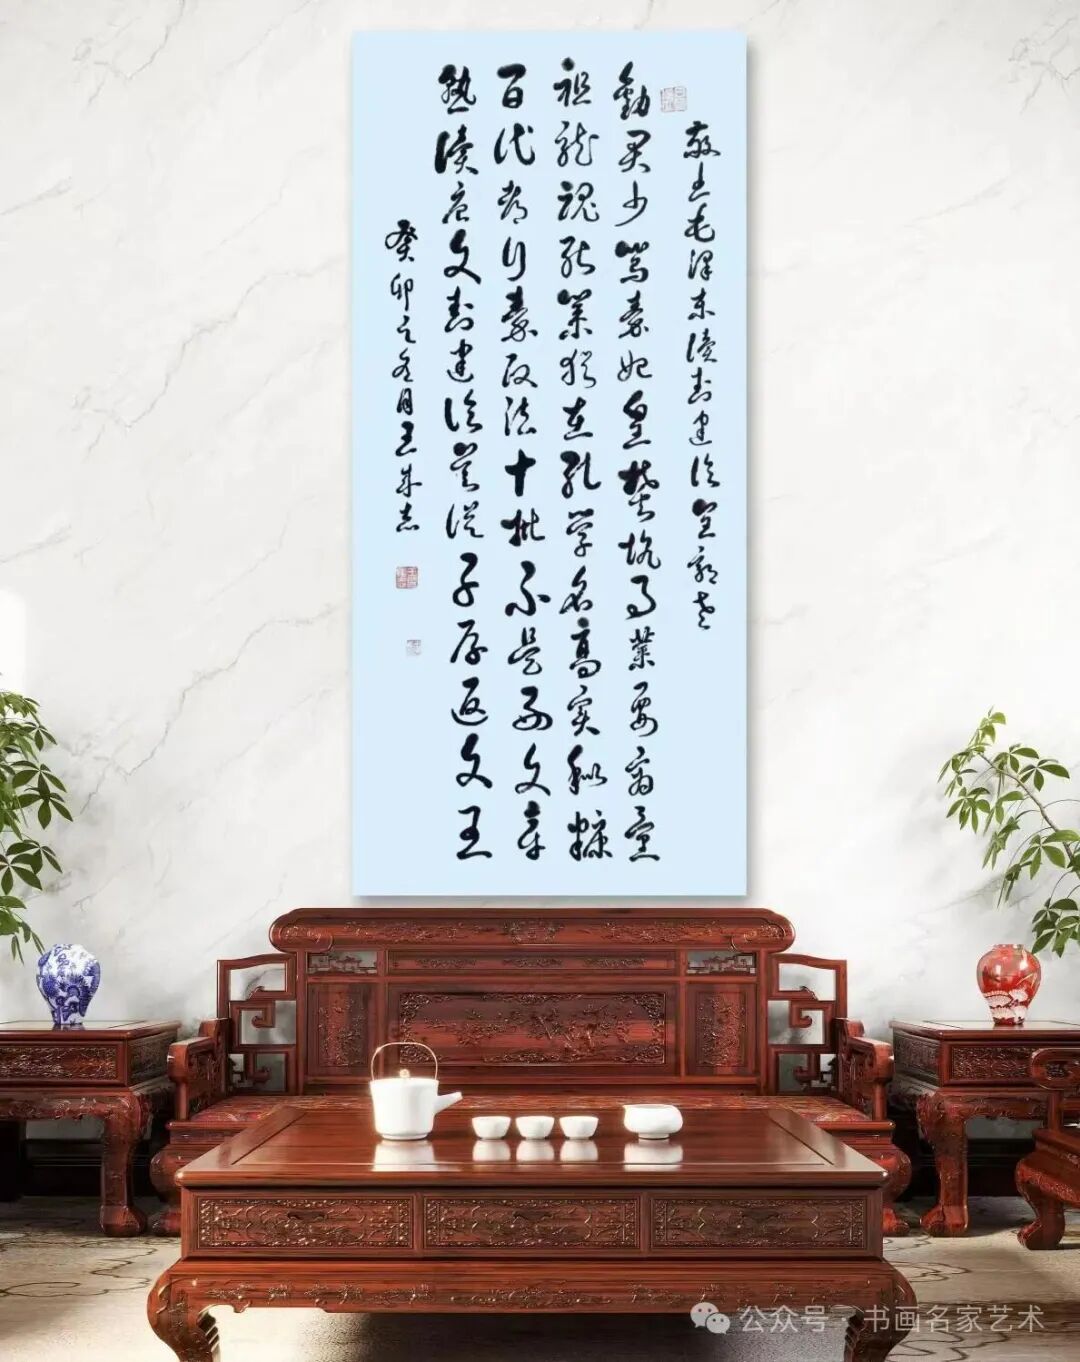 毛泽东读封建论呈郭老
勸君少罵秦始皇焚坑事業要商量
祖龍魂死業猶在孔學名高實秕糠
百代都行秦政法十批不是好文章
熟讀唐人封建論莫從子厚返文王
癸卯之冬月王志
公众号 · 书画名家艺术